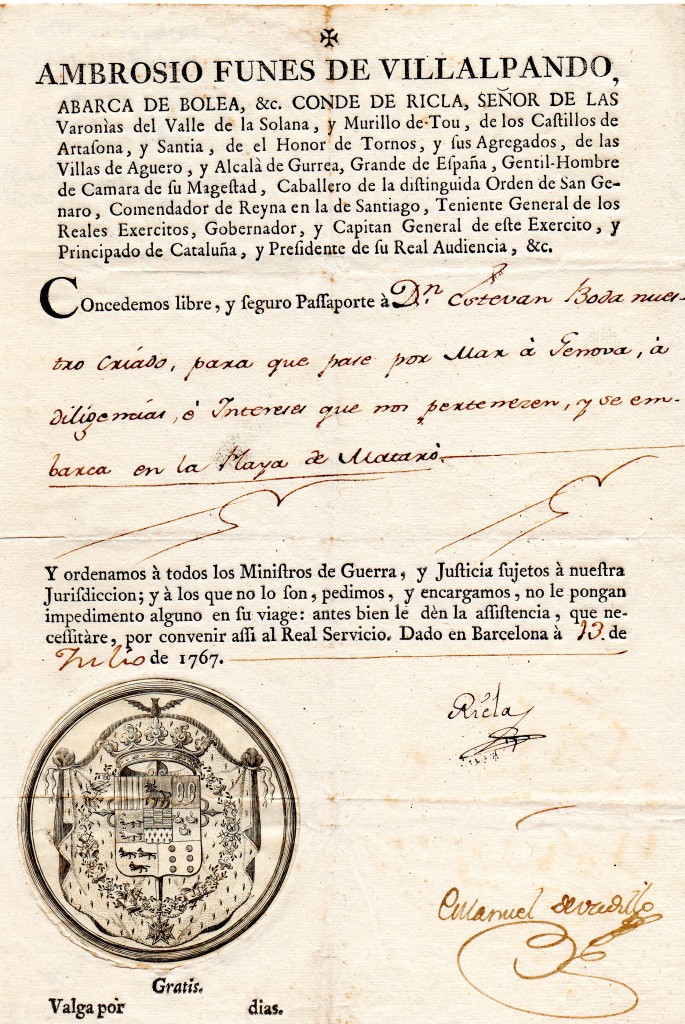 ✠
AMBROSIO FUNES DE VILLALPANDO,
ABARCA DE BOLEA, &c. CONDE DE RICLA, SEÑOR DE LAS
Varonìas del Valle de la Solana, y Murillo de Tou, de los Caſtillos de
Artaſona, y Santia, de el Honor de Tornos, y ſus Agregados, de las
Villas de Aguero, y Alcalà de Gurrea, Grande de Eſpaña, Gentil-Hombre
de Camara de ſu Mageſtad, Caballero de la diſtinguida Orden de San Ge-
naro, Comendador de Reyna en la de Santiago, Teniente General de los
Reales Exercitos, Gobernador, y Capitan General de eſte Exercito, y
Principado de Cataluña, y Preſidente de ſu Real Audiencia, &c.
Concedemos libre, y ſeguro Paſſaporte à Dn. Estevan Boda nues-
tro Criádo, para que pase por Mar à Genova, à
diligencias, è Intereses que nos pertenezen, y se em-
barca en la Playa de Mataró.
Y ordenamos à todos los Miniſtros de Guerra, y Juſticia ſujetos à nueſtra
Jurisdiccion; y à los que no lo ſon, pedimos, y encargamos, no le pongan
impedimento alguno en ſu viage: antes bien le dèn la aſſiſtencia, que ne-
ceſſitàre, por convenir aſſi al Real Servicio. Dado en Barcelona à 13 de
Julio de 1767.
Ricla
Manuel
Gratis.
Valga por dias.